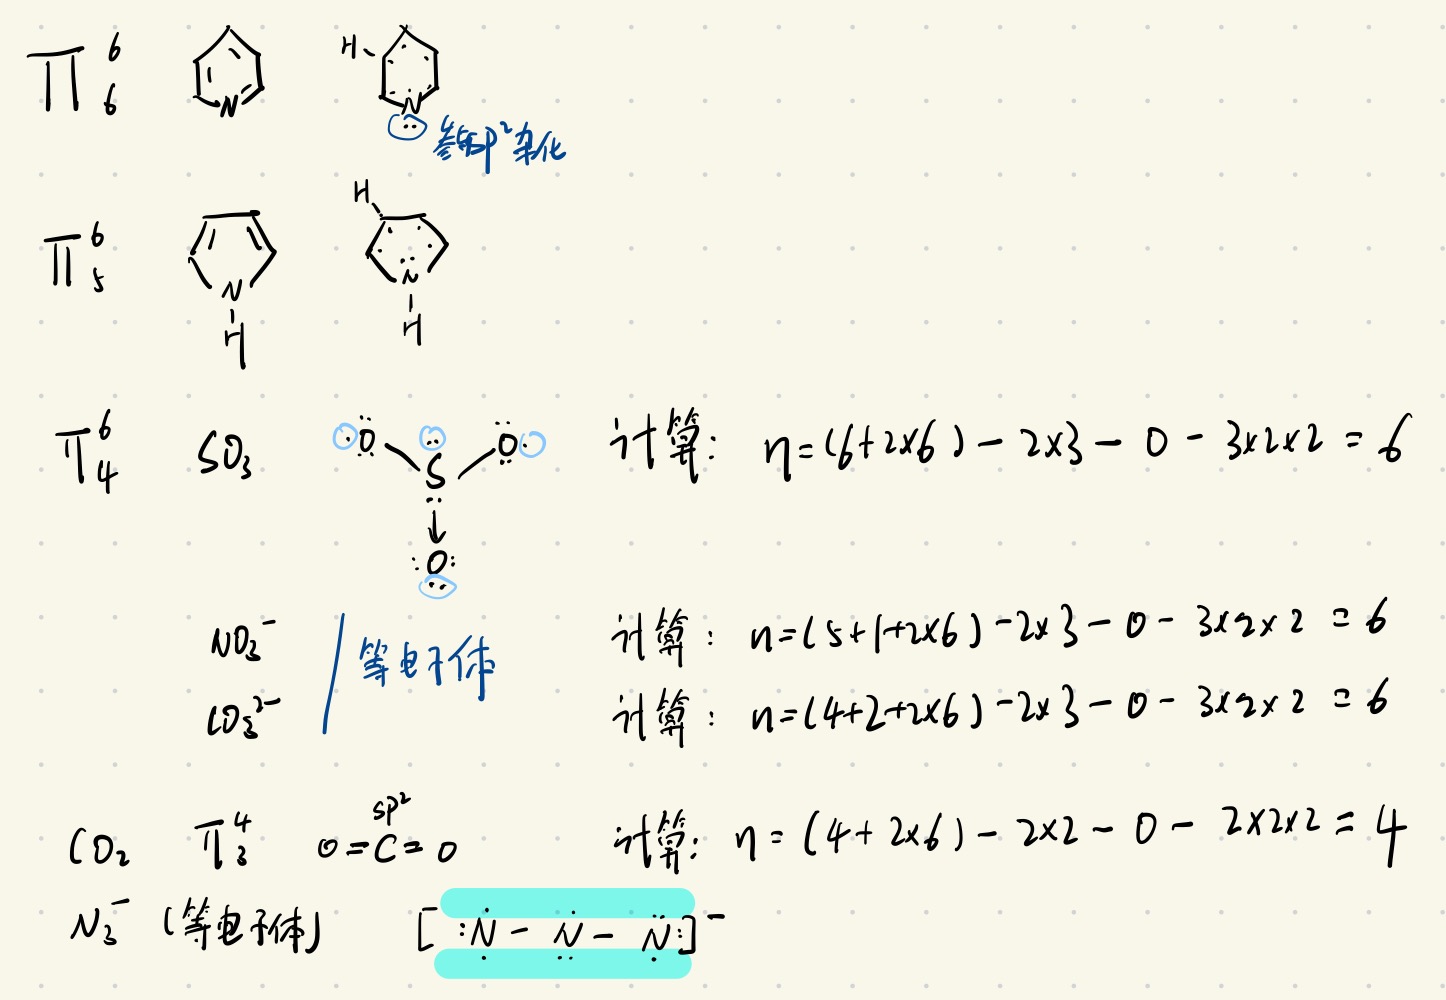 Π⁶₆ N H N 参与sp²杂化
Π⁶₅ N H H N H
Π⁶₄ SO₃ O S O O 计算: n=(6+2×6)-2×3-0-3×2×2=6
NO₃⁻ 等电子体 计算: n=(5+1+2×6)-2×3-0-3×2×2=6
CO₃²⁻ 计算: n=(4+2+2×6)-2×3-0-3×2×2=6
CO₂ Π⁴₃ sp² O=C=O 计算: n=(4+2×6)-2×2-0-2×2×2=4
N₃⁻ (等电子体) [:N-N-N:]⁻